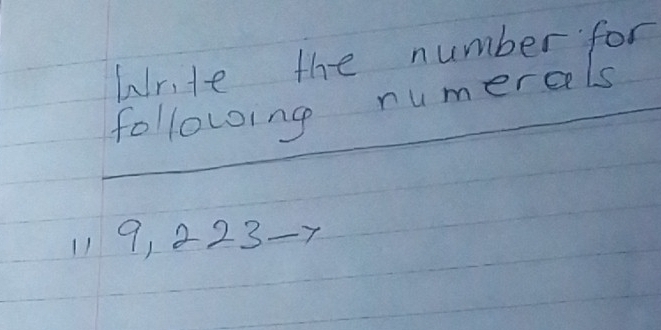 Write the number for
following numerals
1) 9,223→